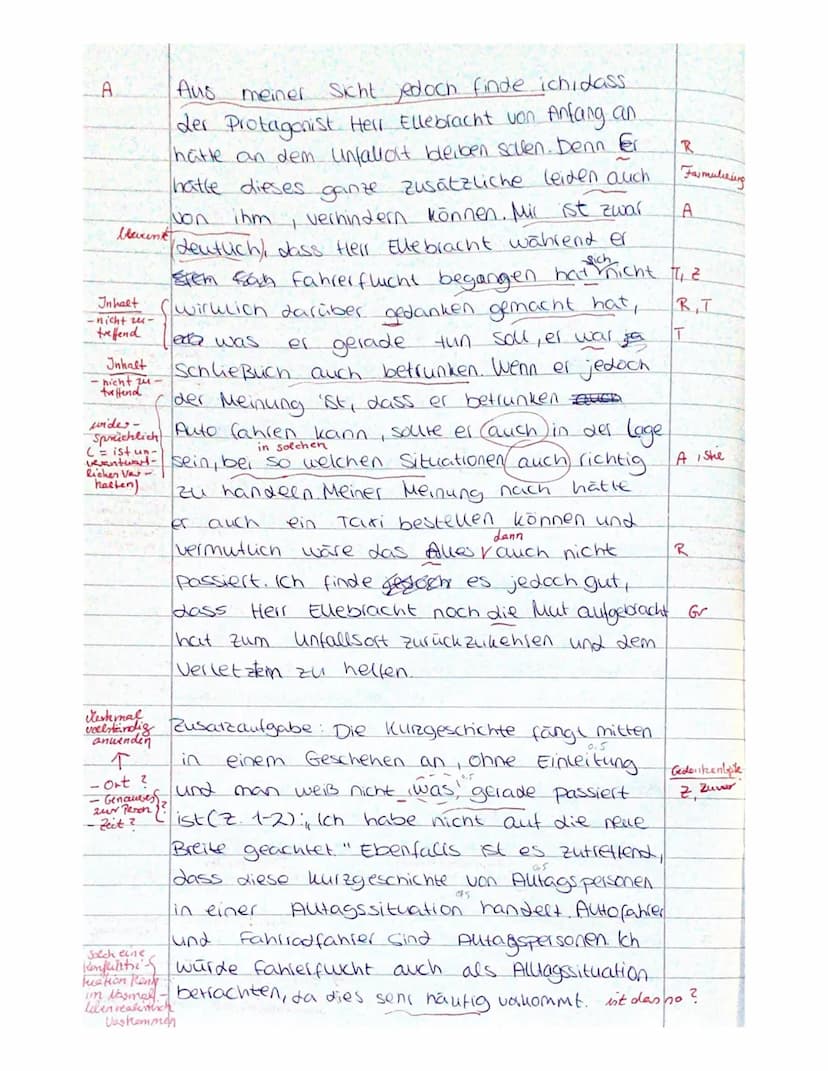 A
Aus meiner Sicht jedoch finde ich, dass
der Protagonist Herr Ellebracht von Anfang an
hätte an dem Unfallort bleiben sollen. Denn Er
R
hätte dieses ganze zusätzliche leiden auch
Formulierung
von ihm, verhindern können. Mir ist zwar
A
(deutlich), dass Herr Ellebracht während er
Fahrerflucht begangen hat sich nicht
T, Z
Inhalt
- nicht zu-
treffend
wirklich darüber gedanken gemacht hat,
R, T
was er gerade tun soll, er war ja
T
Inhalt
- nicht zu-
treffend
schließlich auch betrunken. Wenn er jedoch
der Meinung ist, dass er betrunken
wider-
sprüchlich
(= ist un-
verantwort-
liches Ver-
halten)
Auto fahren kann, sollte er auch in der Lage
in solchen
sein, bei so welchen Situationen auch richtig
A
zu handeln. Meiner Meinung nach hätte
er auch ein Taxi bestellen können und
dann
vermutlich wäre das Alles auch nicht
R
passiert. Ich finde es jedoch gut,
dass Herr Ellebracht noch die Mut aufgebracht
Gr
hat zum Unfallsort zurückzukehren und dem
Verletzten zu helfen.
Merkmal
vollständig
anwenden
↑
- Ort?
- Genaueres
zur Person?
- Zeit?
Zusatzaufgabe: Die Kurzgeschichte fängt mitten
in einem Geschehen an, ohne Einleitung
und man weiß nicht was gerade passiert
Z
ist (Z. 1-2): „Ich habe nicht auf die neue
Breite geachtet." Ebenfalls ist es zutreffend,
dass diese Kurzgeschichte von Alltagspersonen
in einer Alltagssituation handelt. Autofahrer
und Fahrradfahrer sind Alltagspersonen. Ich
würde Fahrerflucht auch als Alltagssituation
betrachten, da dies sehr häufig vorkommt.
ist das so?
solch eine
Konfliktsi-
tuation kann
im normal-
leben realistisch
vorkommen